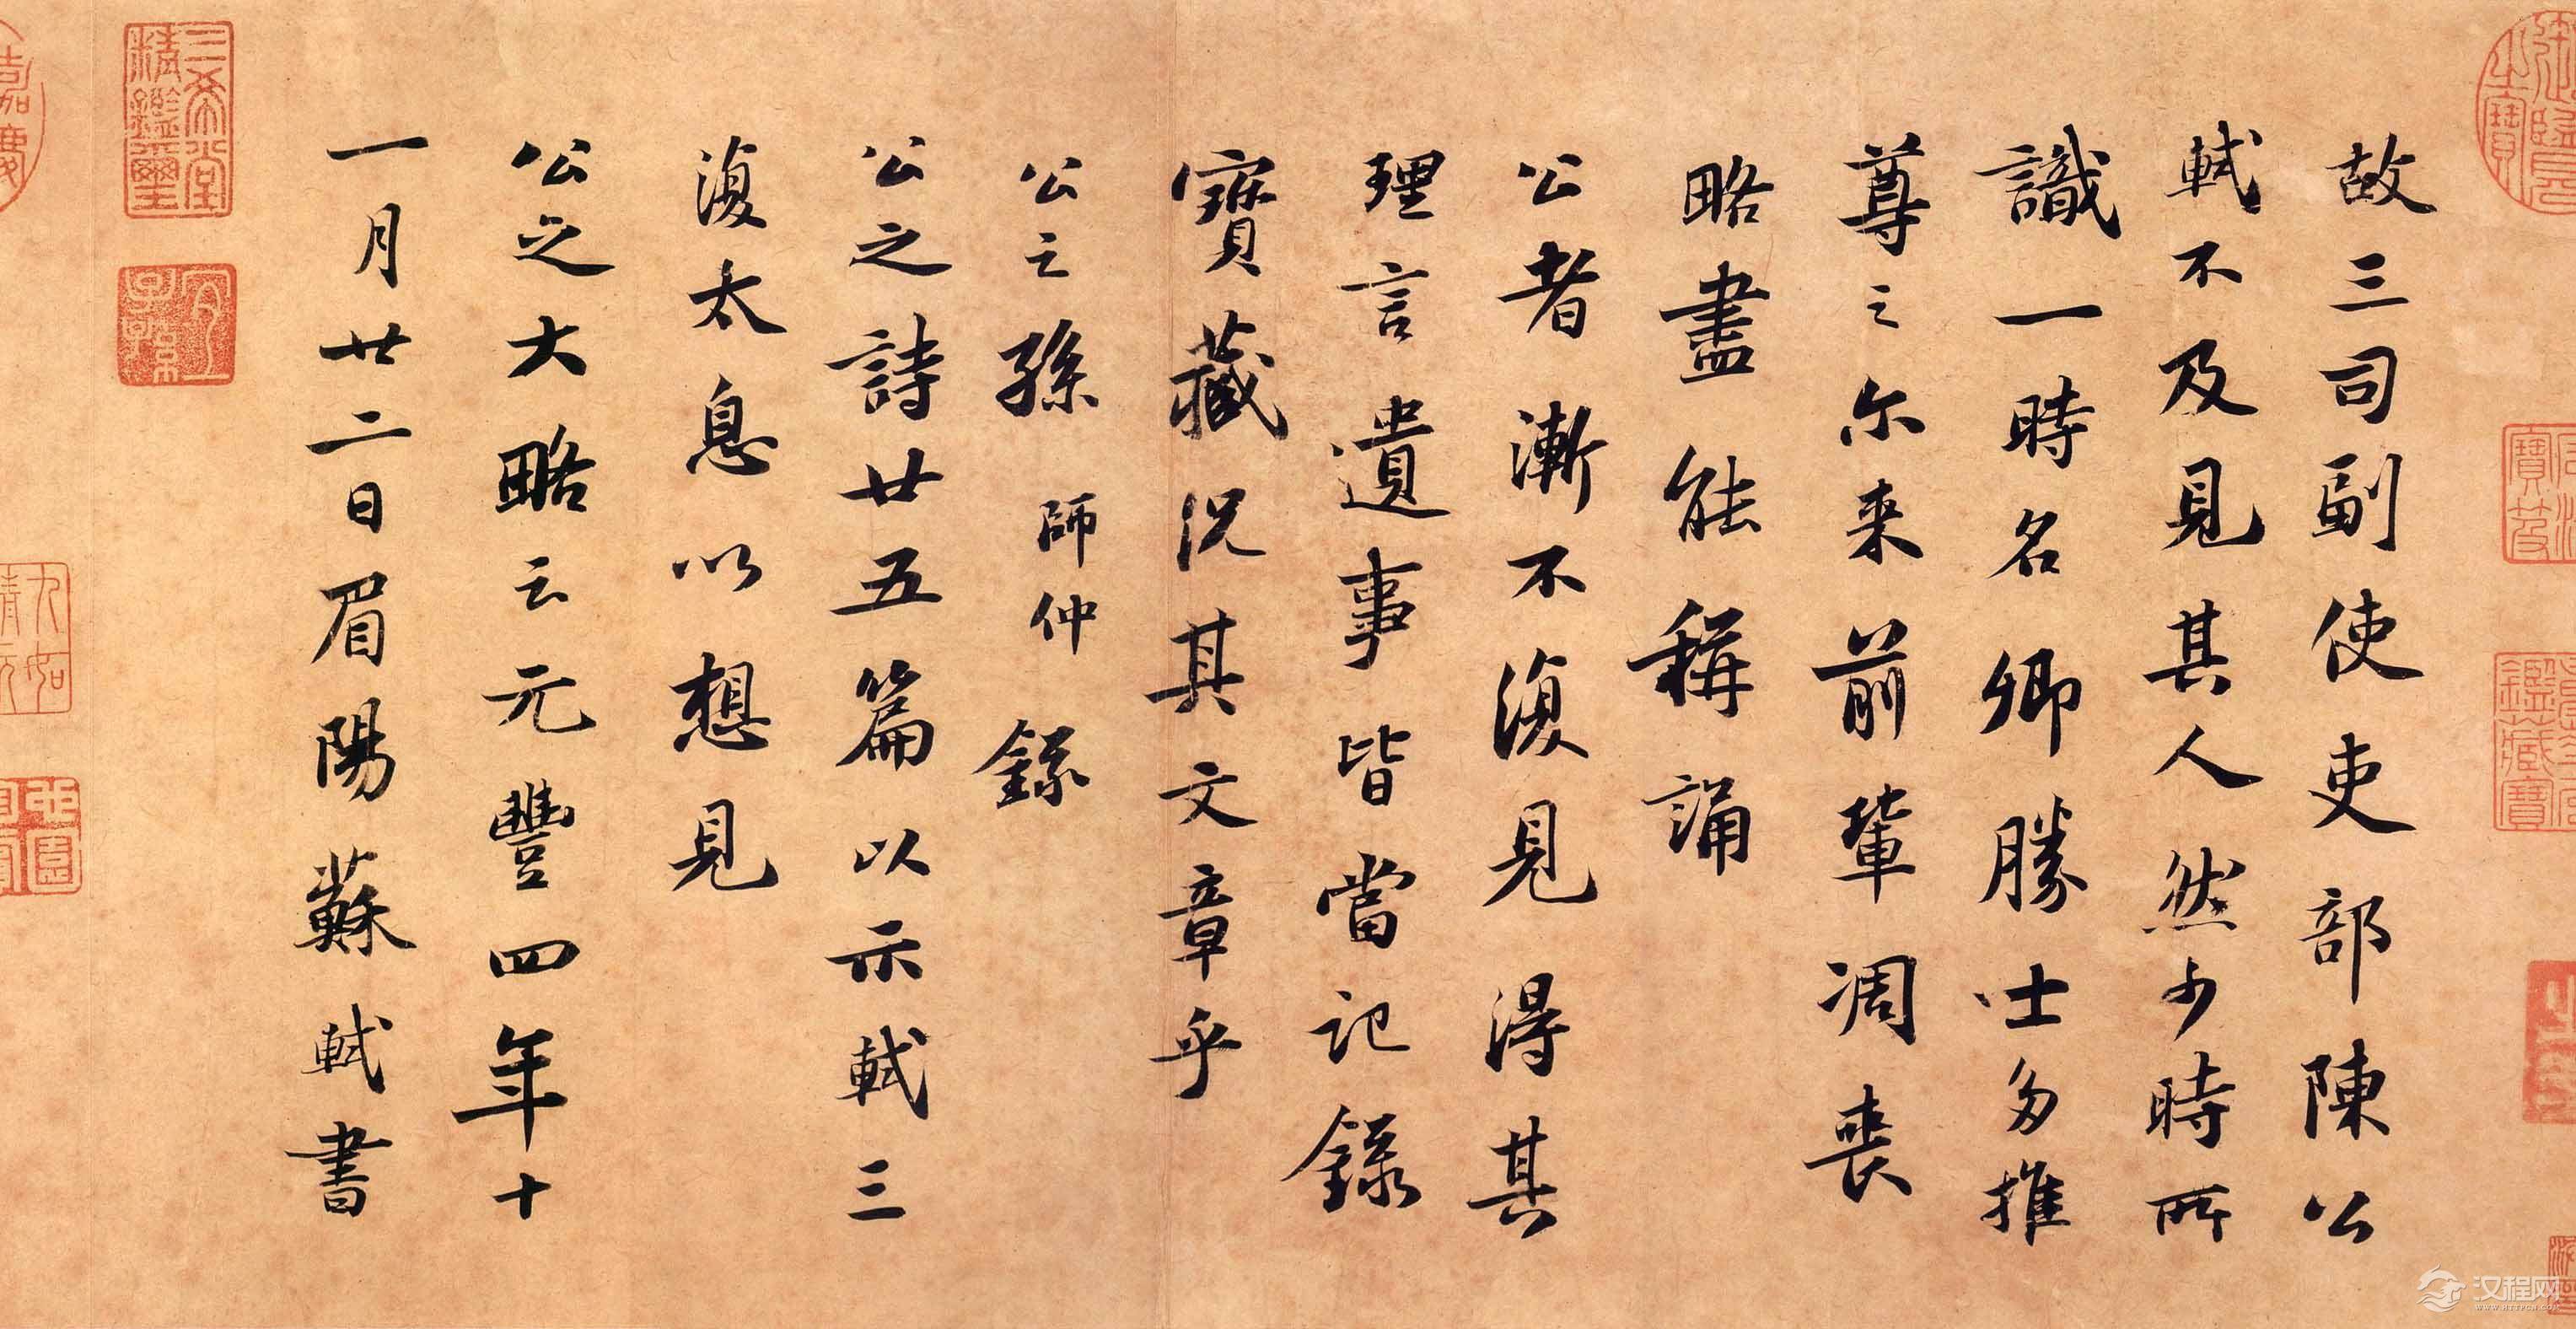 故三司副使吏部陳公
軾不及見其人然少時所
識一時名卿勝士多推
尊之尔来前輩凋喪
略盡能稱誦
公者漸不復見得其
理言遺事皆當記錄
寶藏況其文章乎
公之孫師仲錄
公之詩廿五篇以示軾三
復太息以想見
公之大略云元豐四年十
一月廿二日眉陽蘇軾書
三希堂
精鑑璽
宜
子孫
石渠
寶笈
汉程网
WWW.HTTPCN.COM